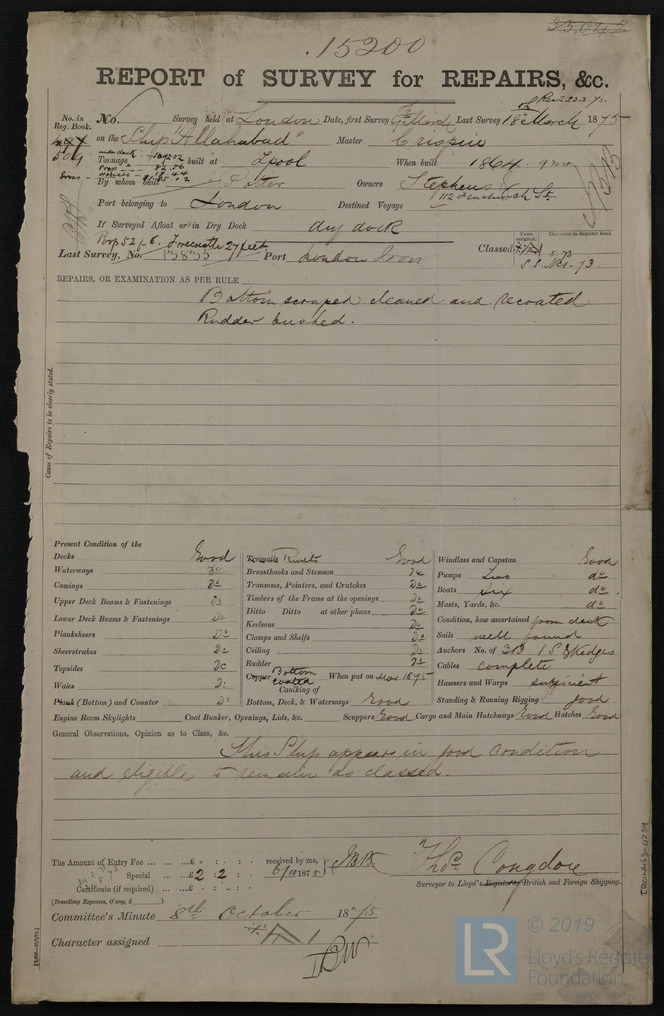 15200
REPORT of SURVEY for REPAIRS, &c.
No. in Reg. Book.
No. Survey held at London Date, first Survey Last Survey 18th March 1875
on the Ship "Allahabad" Master Crispin
509
under deck
Tonnage built at Lpool When built 1864. 9 mo
By whom built Potter Owners Stephens
Port belonging to London Destined Voyage
If Surveyed Afloat or in Dry Dock dry dock
Freeboard 27 feet
Last Survey, No. 13835 Port London Iron
Classed
Years assigned.
Character in Register Book.
REPAIRS, OR EXAMINATION AS PER RULE
Bottom scraped cleaned and recoated
Rudder bushed.
Cause of Repairs to be clearly stated.
Present Condition of the
Decks Good
Waterways do
Comings Do
Upper Deck Beams & Fastenings Do
Lower Deck Beams & Fastenings Do
Planksheers Do
Sheerstrakes Do
Topsides Do
Wales Do
Plank (Bottom) and Counter Do
Engine Room Skylights
Treenails Rivets Good
Breasthooks and Stemson Do
Transoms, Pointers, and Crutches Do
Timbers of the Frame at the openings Do
Ditto Ditto at other places Do
Keelsons Do
Clamps and Shelfs Do
Ceiling Do
Rudder Do
Copper Bottom coated When put on Mar 1875
Caulking of
Bottom, Deck, & Waterways Good
Coal Bunker, Openings, Lids, &c. Scuppers Good Cargo and Main Hatchways Good Hatches Good
Windlass and Capstan Good
Pumps Two do
Boats six do
Masts, Yards, &c. do
Condition, how ascertained from deck
Sails well found
Anchors No. of 3 B 1 S & Kedges
Cables complete
Hawsers and Warps sufficient
Standing & Running Rigging good
General Observations, Opinion as to Class, &c.
This Ship appears in good condition
and eligible to remain as classed.
The Amount of Entry Fee £ : : received by me,
Special £2 : 2 : 6/10 1875
Certificate (if required) £ : :
(Travelling Expenses, if any, £ )
Thos. Congdon
Surveyor to Lloyd's Register of British and Foreign Shipping.
Committee's Minute 8th October 1875
Character assigned
IRON463-0239
© 2019
LR
Lloyd's Register
Foundation